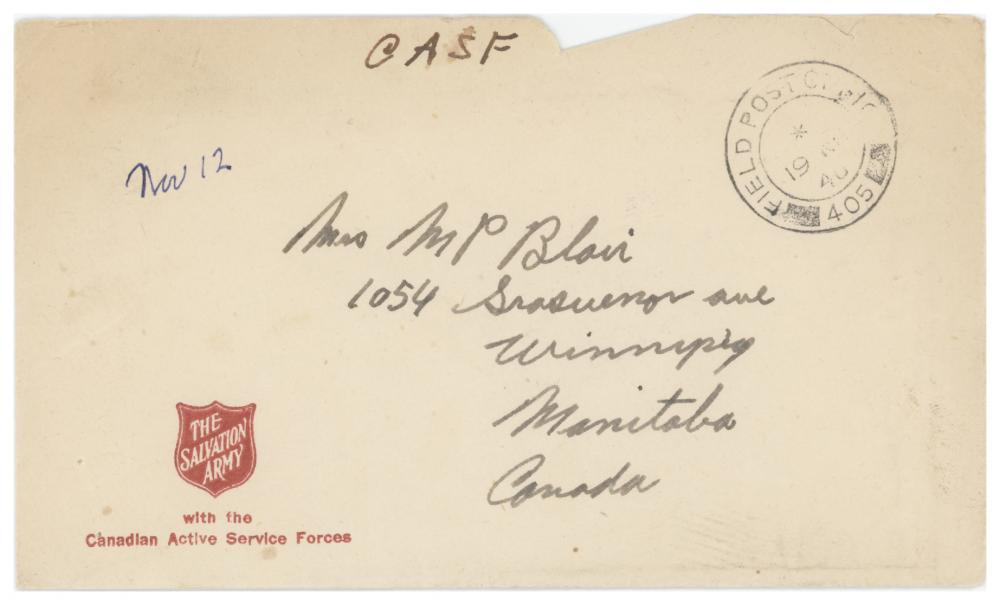 CASF
FIELD POST OFFICE
405
19
40
Nov 12
Mrs M P Blair
1054 Grosvenor ave
Winnipeg
Manitoba
Canada
THE
SALVATION
ARMY
with the
Canadian Active Service Forces